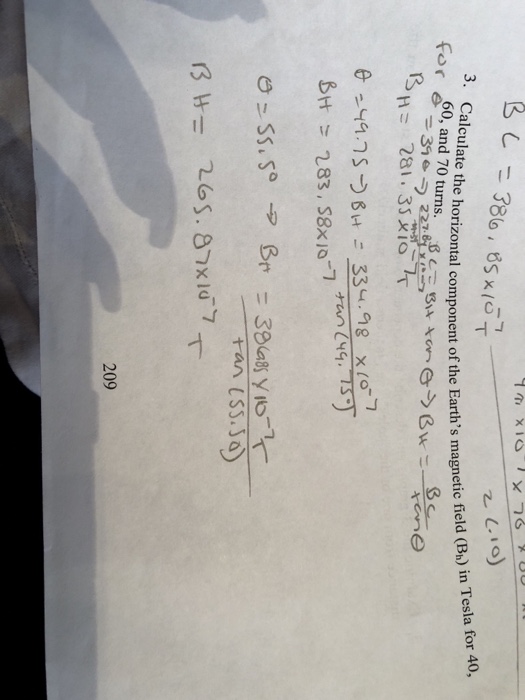 4π x 10-7 x 76 x
2 (.10)
BC = 386,85x10-7 T
3. Calculate the horizontal component of the Earth's magnetic field (Bh) in Tesla for 40,
60, and 70 turns.
BC = BH tan θ -> BH = BC
tanθ
for θ = 390 ->
BH = 281.35x10-7 T
θ = 49.75 -> BH = 334.98 x10-7
tan(49.75°)
BH = 283,58x10-7
θ = 55,5° -> BH = 386,85 x 10-7 T
tan(55.50)
BH = 265.87x10-7 T
209